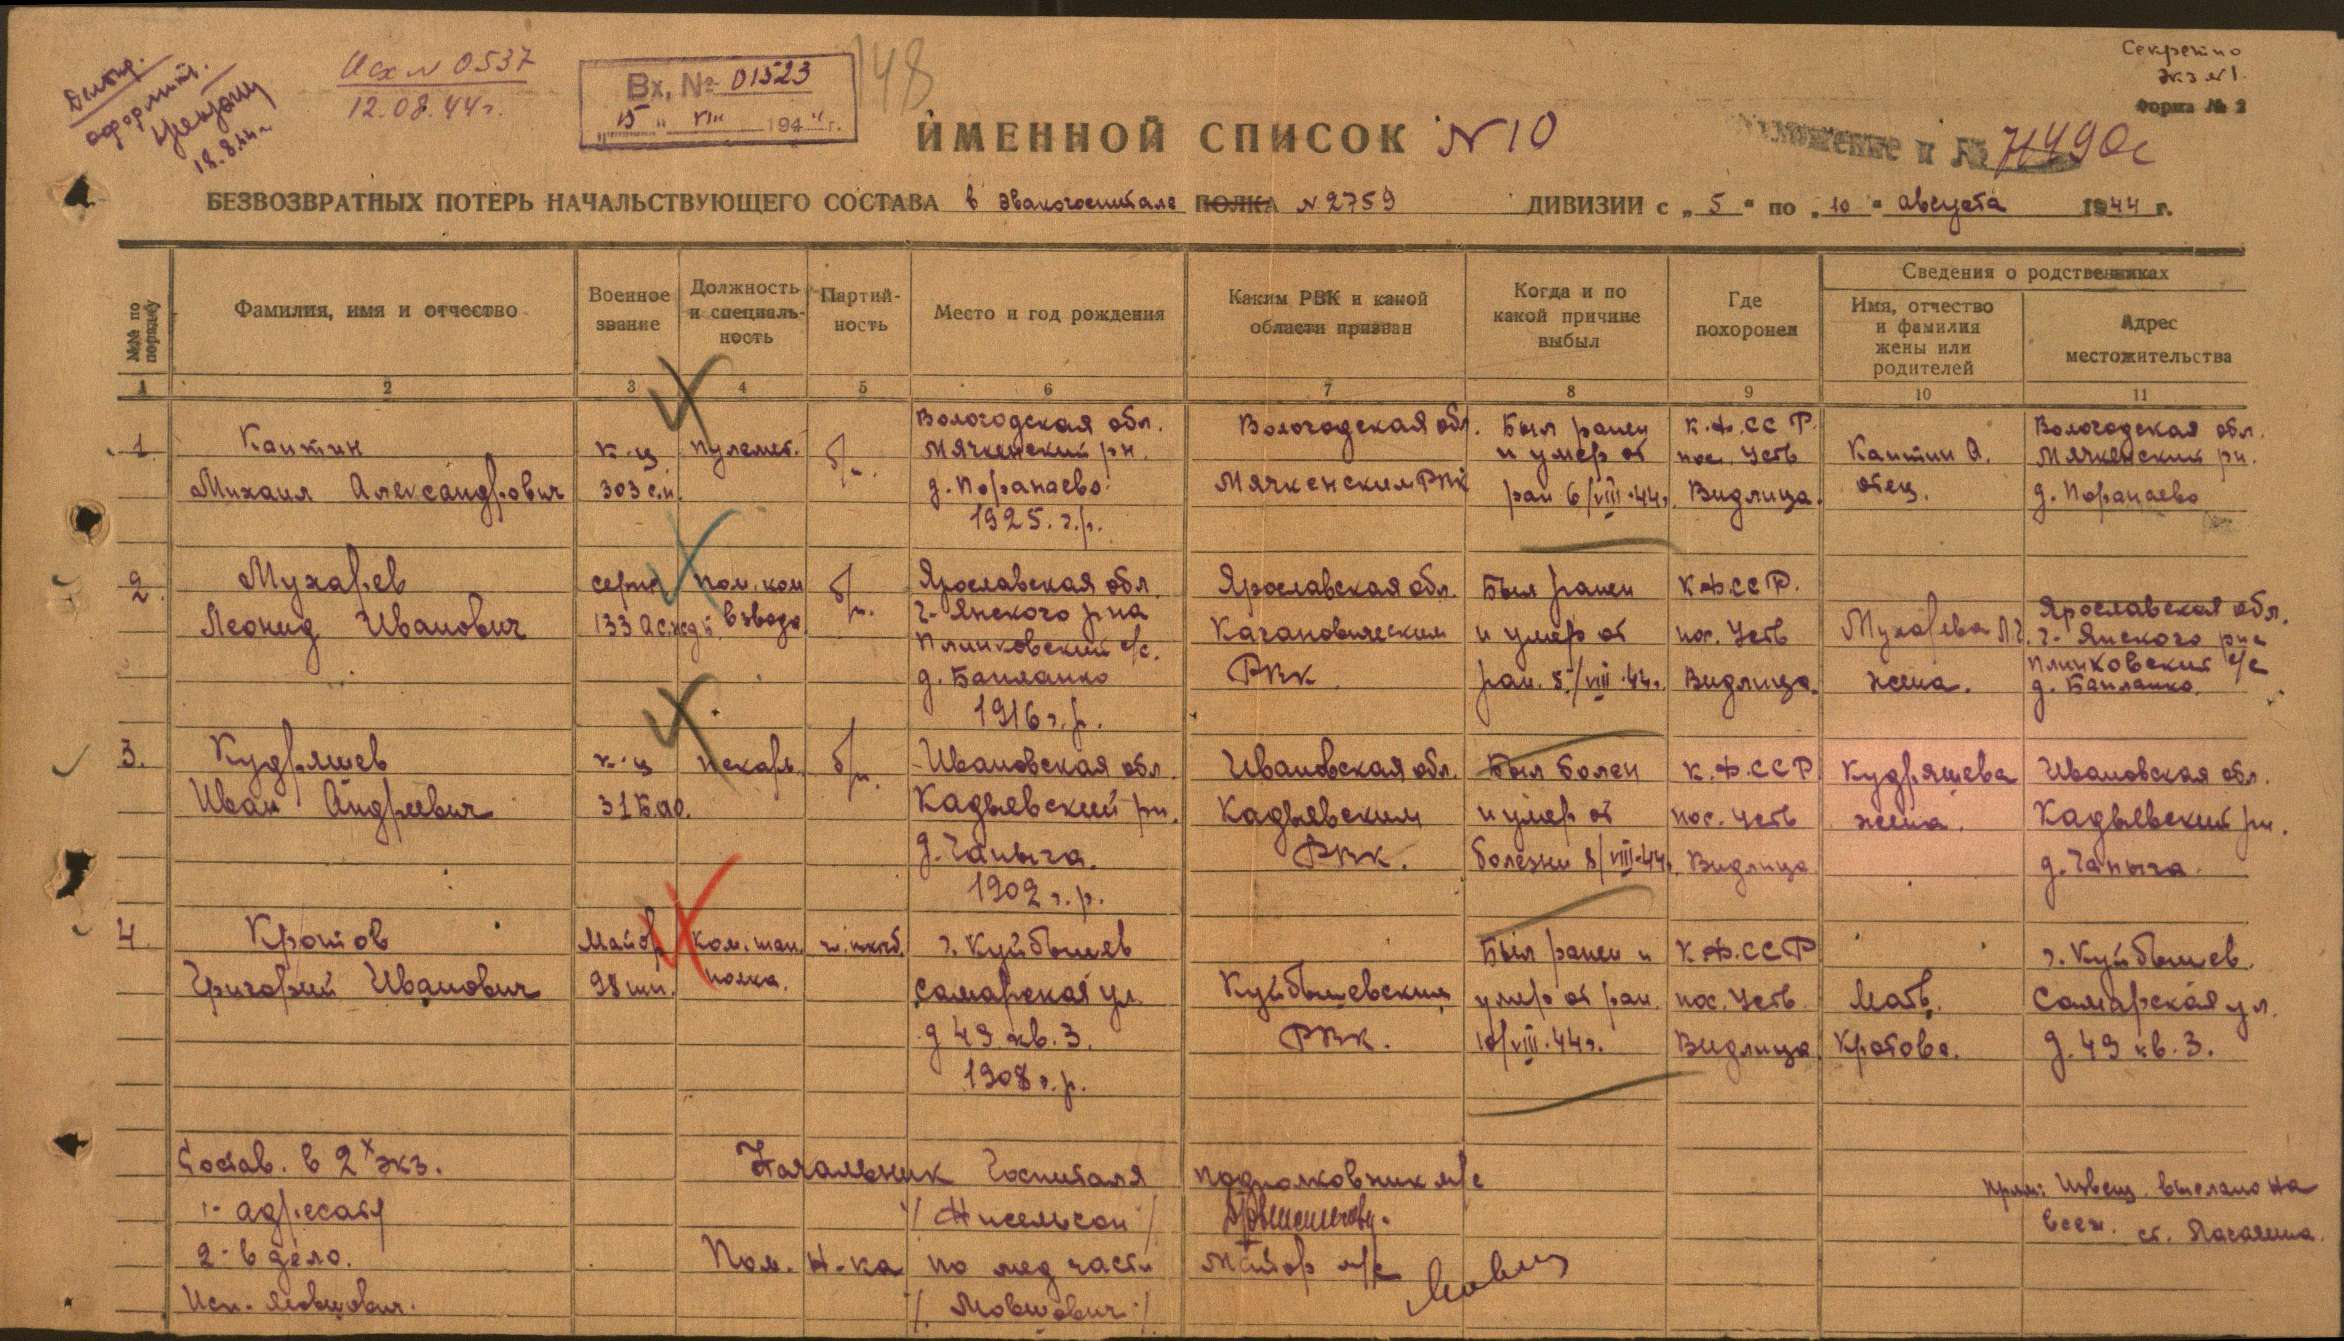 Исх № 0537
12.08.44г.
18.8.44г.
Вх. № 01523
"15" VIII 1944г.
148
Секретно
Экз №1.
Форма № 2
ИМЕННОЙ СПИСОК №10
Приложение к № 71490с
БЕЗВОЗВРАТНЫХ ПОТЕРЬ НАЧАЛЬСТВУЮЩЕГО СОСТАВА в эвакогоспитале ПОЛКА №2759 ДИВИЗИИ с „5" по „10" августа 1944 г.
№№ по порядку
Фамилия, имя и отчество
Военное звание
Должность и специаль-
ность
Партий-
ность
Место и год рождения
Каким РВК и какой
области призван
Когда и по
какой причине
выбыл
Где
похоронен
Сведения о родственниках
Имя, отчество
и фамилия
жены или
родителей
Адрес
местожительства
1 2 3 4 5 6 7 8 9 10 11
1.
Каптин
Михаил Александрович
к-ц
303 с.п.
пулемет.
б/п.
Вологодская обл.
Мячкенский рн.
д. Поранаево
1925. г.р.
Вологодская обл.
Мячкенским РВК
Был ранен
и умер от
ран 6/VIII.44г.
К.Ф.ССР.
пос. Усть
Видлица.
Каптин А.
отец.
Вологодская обл.
Мячкенский рн.
д. Поранаево
2.
Мухарев
Леонид Иванович
серж
пом. ком
взвода
б/п.
Ярославская обл.
г-Янского рна
Плинковский с/с.
д. Бапланко
1916 г.р.
Ярославская обл.
Кагановическим
РВК.
Был ранен
и умер от
ран. 5/VIII.44г.
К.Ф.ССР.
пос. Усть
Видлица.
Мухарева
жена.
Ярославская обл.
г-Янского рна
Плинковский с/с
д. Бапланко.
3.
Кудряшев
Иван Андреевич
к-ц
31 Бао.
пекарь.
б/п.
Ивановская обл.
Кадыевский рн.
д. Чапыга.
1902 г.р.
Ивановская обл.
Кадыевским
РВК.
Был болен
и умер от
болезни 8/VIII.44г.
К.Ф.ССР
пос. Усть
Видлица
Кудряшева
жена.
Ивановская обл.
Кадыевский рн.
д. Чапыга.
4.
Кротов
Григорий Иванович
Майор
98 сп.
полка.
г. Куйбышев
Самарская ул.
д 49 кв. 3.
1908 г.р.
Куйбышевским
РВК.
Был ранен и
умер от ран.
10/VIII.44г.
К.Ф.ССР
пос. Усть
Видлица
Мать.
Кротова.
г. Куйбышев.
Самарская ул.
д. 49 кв. 3.
Состав. в 2х экз.
1- адресату
2- в дело.
Исп. Мовшович.
Начальник Госпиталя подполковник м/с
/Нисельсон/
Пом. Н-ка по мед части Майор м/с
/Мовшович/
прим: Извещ. выслано на
всех.